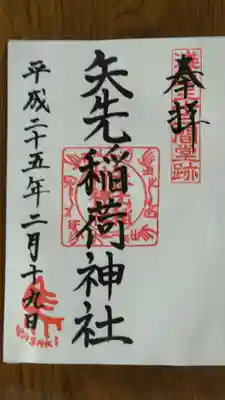 奉拝
浅草三十三間堂跡
矢先稲荷神社
平成二十五年二月十九日
YASAKI